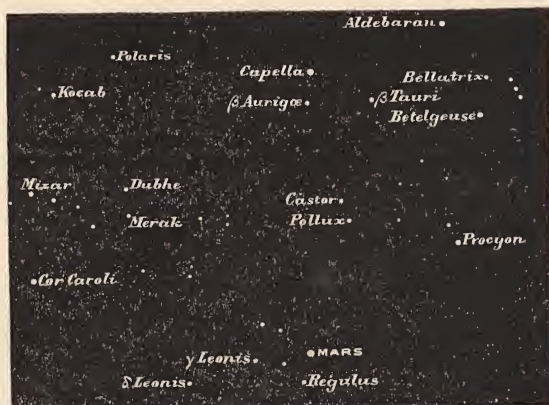 Aldebaran
Polaris
Capella
Bellatrix
Kocab
β Aurigæ
β Tauri
Betelgeuse
Mizar
Dubhe
Castor
Merak
Pollux
Procyon
Cor Caroli
γ Leonis
MARS
δ Leonis
Regulus